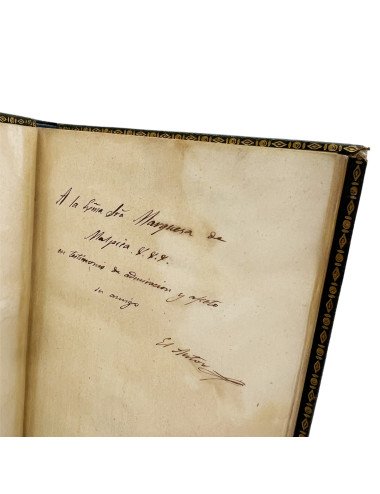 A la Exma Sra Marquesa de
Malpica &. &. &.
en testimonio de admiracion y afecto
su amigo
El Autor